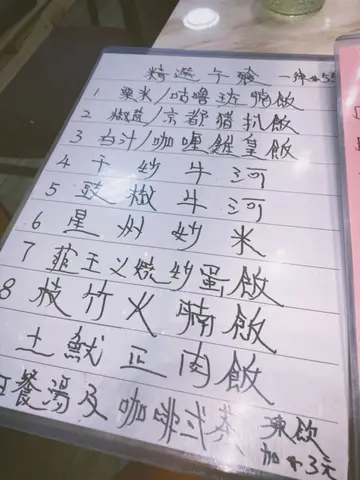 精選午餐 一律$55
1 粟米/咕嚕班腩飯
2 椒鹽/京都豬扒飯
3 白汁/咖喱雞皇飯
4 干炒牛河
5 豉椒牛河
6 星州炒米
7 韮王乂燒炒蛋飯
8 枝竹火腩飯
土魷正肉飯
餐湯及咖啡或茶 凍飲
加$3元